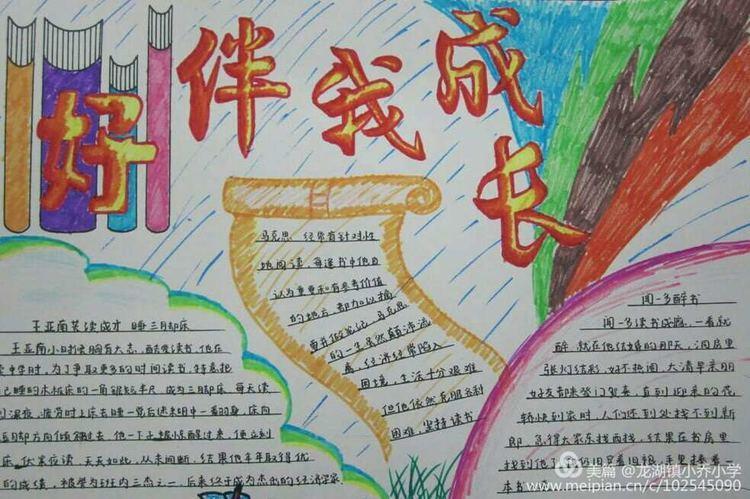 好伴我成长
马克思 经常有针对性
地阅读,每逢书中他自
认为重要和有参考价值
的地方 都加以摘
要并做笔记,马克思
的一生虽然颠沛流
离,经济经常陷入
困境,生活十分艰难
但他依然克服各种
困难,坚持读书
王亚南苦读成才 睡三月却床
王亚南小时候胸有大志,酷爱读书,他在
读中学时,为了争取更多的时间读书,特意把
己睡的木板床的一角锯短半尺,成为三脚床,每天读
到深夜,疲劳时上床去睡一觉后迷糊中一翻身,床向
短脚方向倾斜过去,他一下子被惊醒过来,便立刻
床,伏案夜读,天天如此,从未间断,结果他年年取得优
的成绩,被誉为班内三杰之一,后来终于成为杰出的经济学家
闻一多醉书
闻一多读书成瘾,一看就
醉,就在他结婚的那天,洞房里
张灯结彩,好不热闹,大清早亲朋
好友都来登门贺喜,直到迎亲的花
轿快到家时,人们还到处找不到新
郎,急得大家东找西找,结果在书房里
找到他了,他仍旧穿着旧袍,手里捧着
本书
美篇 @龙湖镇小乔小学
www.meipian.cn/c/102545090